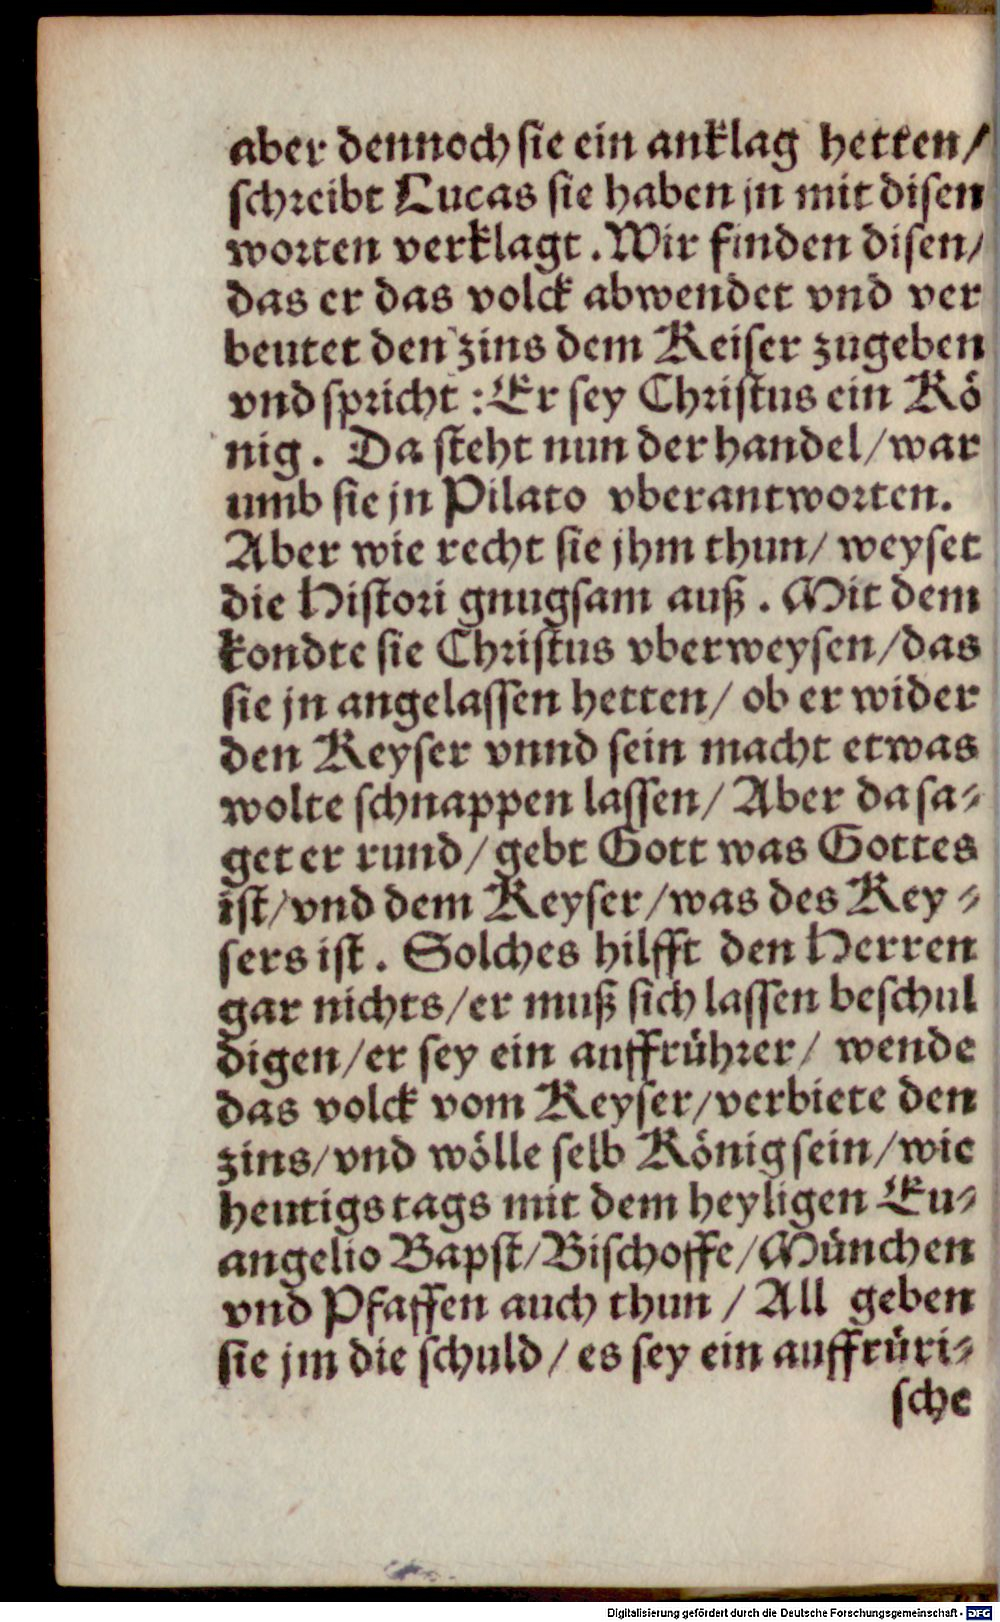 aber dennoch sie ein anklag hetten/
schreibt Lucas sie haben jn mit disen
worten verklagt. Wir finden disen/
das er das volck abwendet vnd ver
beutet den zins dem Keiser zugeben
vnd spricht: Er sey Christus ein Kö
nig. Da steht nun der handel/war
umb sie jn Pilato vberantworten.
Aber wie recht sie jhm thun/ weyset
die Histori gnugsam auß. Mit dem
kondte sie Christus vberweysen/das
sie jn angelassen hetten/ ob er wider
den Keyser vnnd sein macht etwas
wolte schnappen lassen/ Aber da sa-
get er rund/gebt Gott was Gottes
ist/vnd dem Keyser/was des Key-
sers ist. Solches hilfft den Herren
gar nichts/er muß sich lassen beschul
digen/er sey ein auffrührer/ wende
das volck vom Keyser/verbiete den
zins/vnd wölle selb König sein/wie
heutigs tags mit dem heyligen Eu-
angelio Bapst/Bischoffe/München
vnd Pfaffen auch thun/ All geben
sie jm die schuld/es sey ein auffrüri-
sche
Digitalisierung gefördert durch die Deutsche Forschungsgemeinschaft - DFG